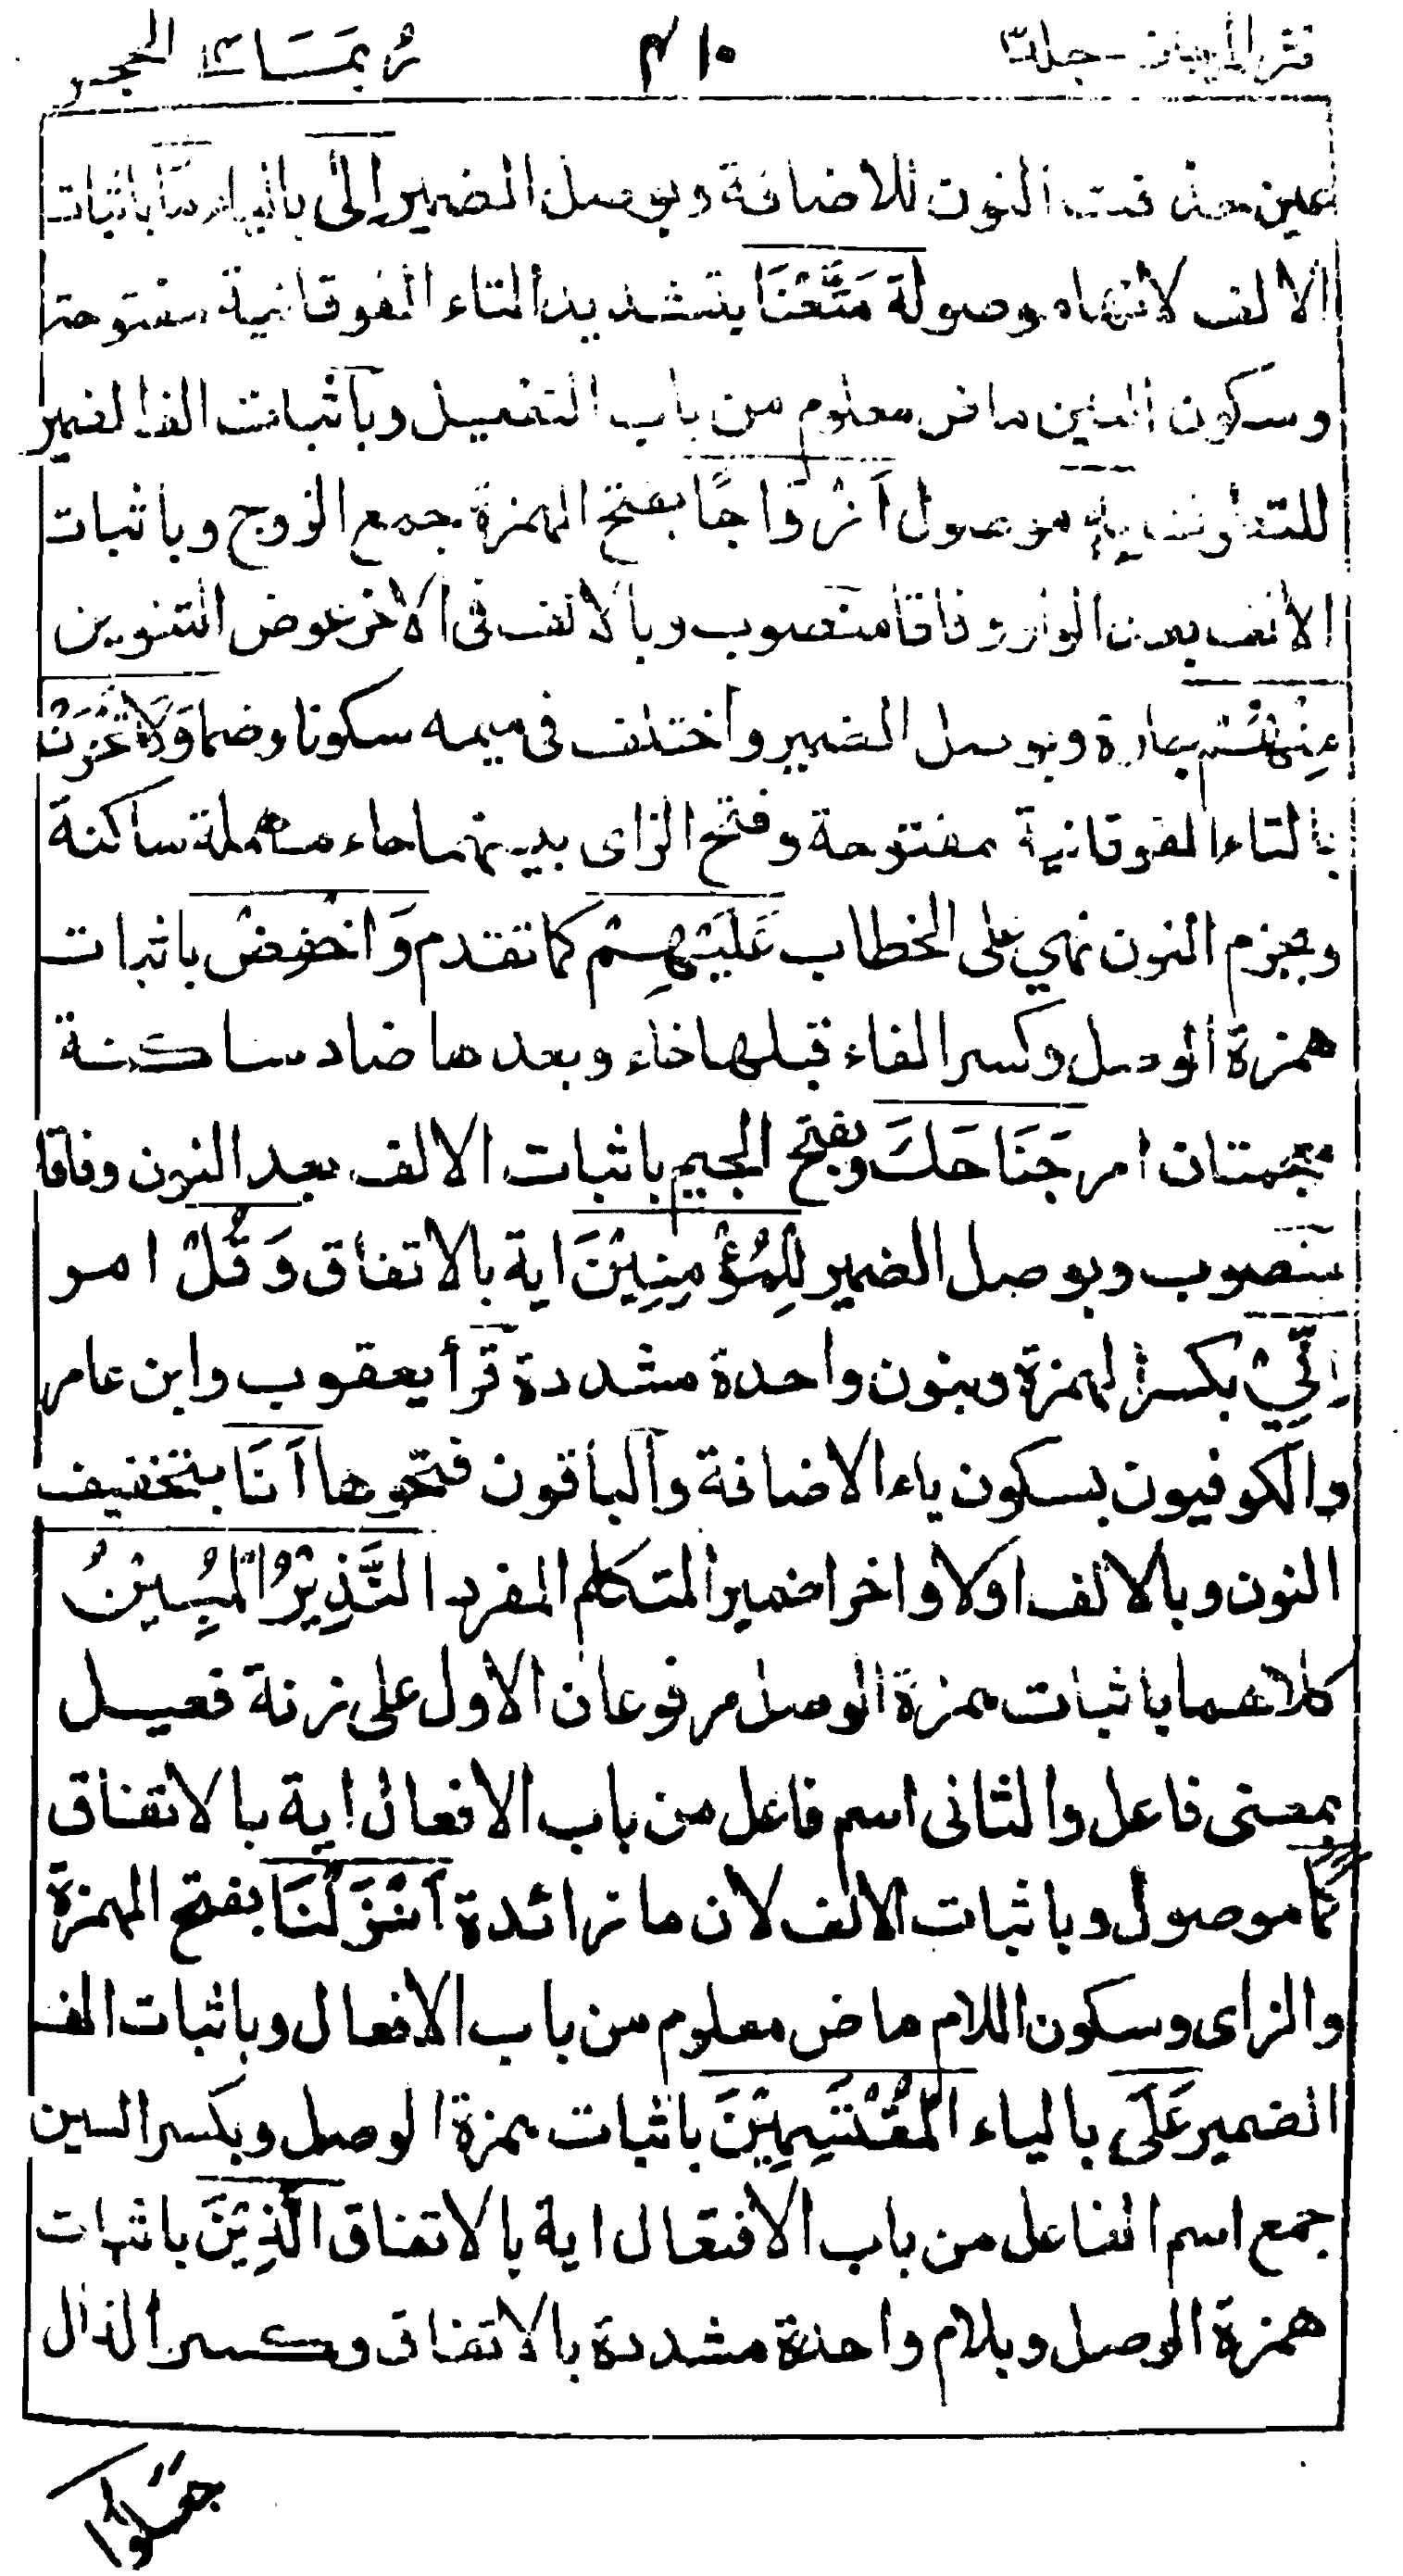 نثر المرجان - جلد ٣ ٤١٠ رُبَمَا ١٤ الحجر
عين حذفت النون للاضافة وبوصل الضمير إِلَى بالياء مَا باثبات
الالف لانها موصولة مَتَّعْنَا بتشديد التاء الفوقانية مفتوحة
وسكون العين ماض معلوم من باب التفعيل وباثبات الف الضمير
للتطرف بِهٖ موصول اَزْوَاجًا بفتح الهمزة جمع الزوج وباثبات
الالف بعد الواو وفاقا منصوب وبالالف فى الاخر عوض التنوين
مِنْهُمْ جارة وبوصل الضمير واختلف فى ميمه سكونا وضما وَلَا تَحْزَنْ
بالتاء الفوقانية مفتوحة وفتح الزاى بينهما حاء مهملة ساكنة
وبجزم النون نهي على الخطاب عَلَيْهِمْ كما تقدم وَاخْفِضْ باثبات
همزة الوصل وكسر الفاء قبلها خاء وبعدها ضاد ساكنة
معجمتان امر جَنَاحَكَ وبفتح الجيم باثبات الالف بعد النون وفاقا
منصوب وبوصل الضمير لِلْمُؤْمِنِيْنَ اية بالاتفاق وَقُلْ امر
اِنِّيْ بكسر الهمزة وبنون واحدة مشددة قرأ يعقوب وابن عامر
والكوفيون بسكون ياء الاضافة والباقون فتحوها اَنَا بتخفيف
النون وبالالف اولا واخرا ضمير المتكلم المفرد النَّذِيْرُ الْمُبِيْنُ
كلاهما باثبات همزة الوصل مرفوعان الاول على زنة فعيل
بمعنى فاعل والثانى اسم فاعل من باب الافعال اية بالاتفاق
كَمَا موصول وباثبات الالف لان ما زائدة اَنْزَلْنَا بفتح الهمزة
والزاى وسكون اللام ماض معلوم من باب الافعال وباثبات الف
الضمير عَلَى بالياء الْمُقْتَسِمِيْنَ باثبات همزة الوصل وبكسر السين
جمع اسم الفاعل من باب الافتعال اية بالاتفاق الَّذِيْنَ باثبات
همزة الوصل وبلام واحدة مشددة بالاتفاق وكسر الذال
جعلوا